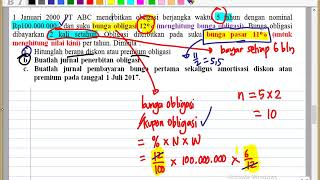 1 Januari 2000 PT ABC menerbitkan obligasi berjangka waktu 5 tahun dengan nominal
Rp100.000.000 dan suku bunga 12% (menghitung bunga obligasi). Bunga obligasi
dibayarkan 2 kali setahun. Obligasi diterbitkan pada suku bunga pasar 11% (untuk
menghitung nilai kini) per tahun. Diminta
a. Hitunglah berapa diskon atau premium obligasi
b. Buatlah jurnal penerbitan obligasi
c. Buatlah jurnal pembayaran bunga pertama sekaligus amortisasi diskon atau
premium pada tanggal 1 Juli 2017.
bayar setiap 6 bln
11/2 = 5,5
bunga obligasi
/kupon obligasi
= % × N × W
= 12/100 × 100.000.000 × 6/12
n = 5 × 2
= 10